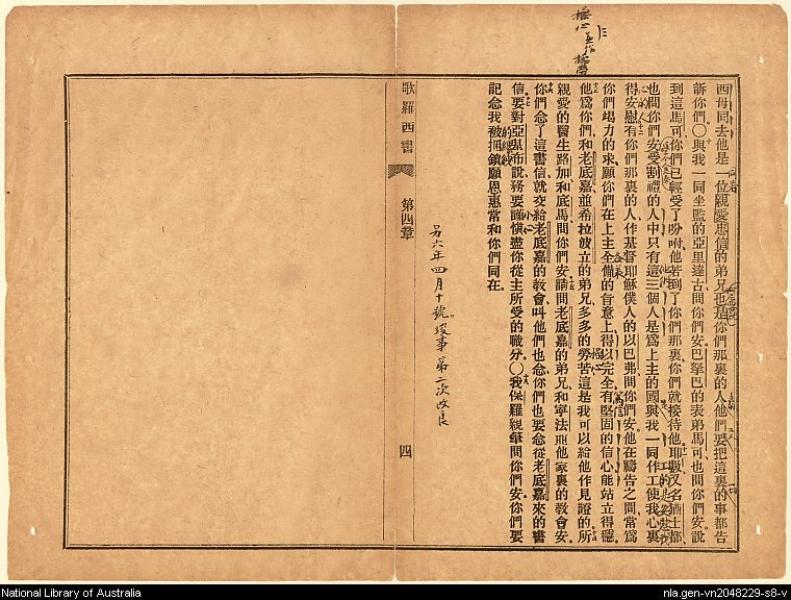 西母同去他是一位親愛忠信的弟兄也是你們那裏的人他們要把這裏的事都告
訴你們〇與我一同坐監的亞里達古問你們安巴拏巴的表弟馬可也問你們安說
到這馬可你們已經受了吩咐他若到了你們那裏你們就接待他耶數又名猶士都
也問你們安受割禮的人中只有這三個人是爲上主的國與我一同作工使我心裏
得安慰有你們那裏的人作基督耶穌僕人的以巴弗問你們安他在禱告之間常爲
你們竭力的求願你們在上主全備的旨意上得以完全有堅固的信心能站立得穩
他爲你們和老底嘉並希拉波立的弟兄多多的勞苦這是我可以給他作見證的所
親愛的醫生路加和底馬問你們安請問老底嘉的弟兄和寧法並他家裏的教會安
你們念了這書信就交給老底嘉的教會叫他們也念你們也要念從老底嘉來的書
信要對亞基布說務要謹愼盡你從主所受的職分〇我保羅親筆問你們安你們要
記念我被捆鎖願恩惠常和你們同在
小心
六年四月十號竣事第二次改良
歌羅西書 第四章 四
National Library of Australia
nla.gen-vn2048229-s8-v